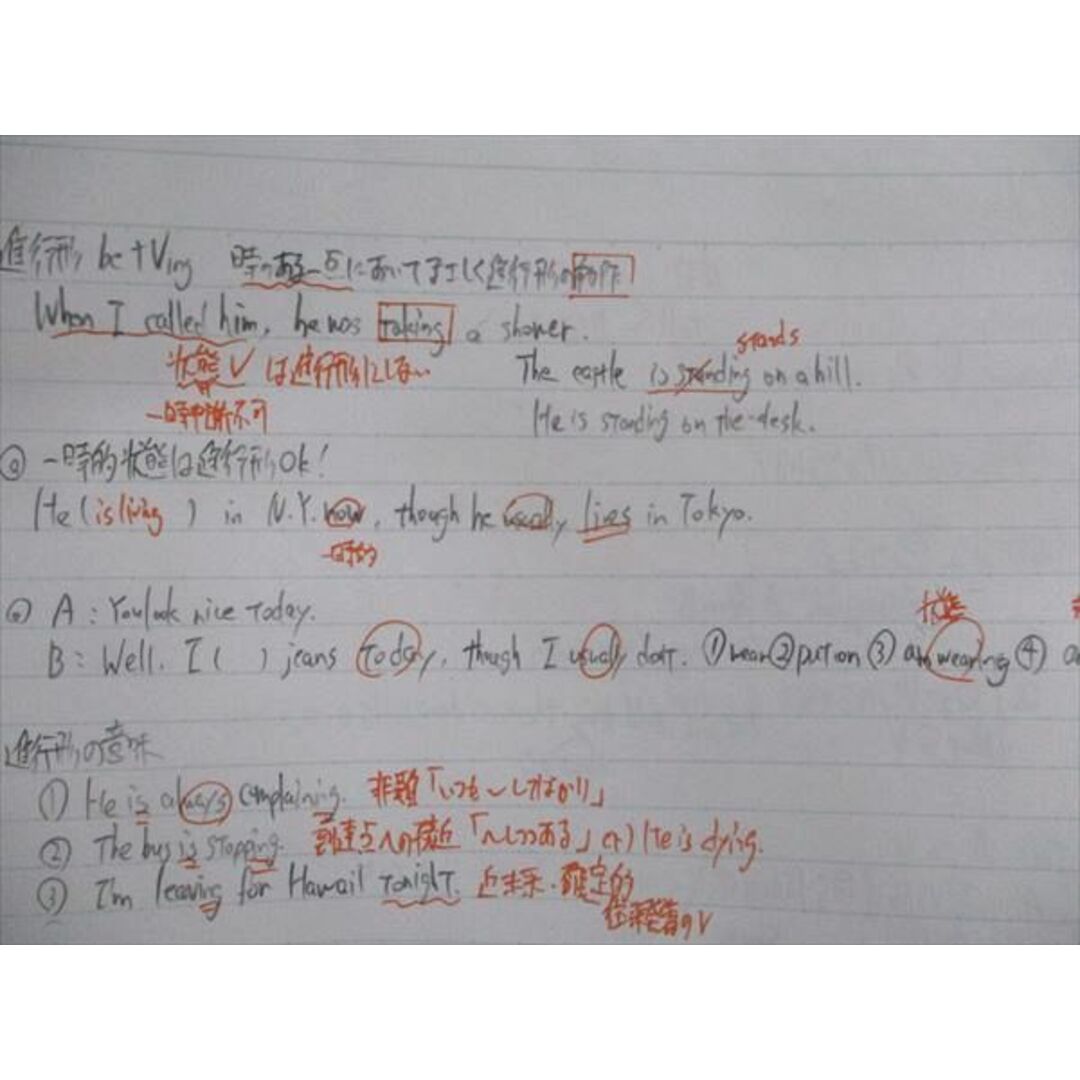 進行形 be+Ving 時のある一点においてまさしく進行形の動作
When I called him, he was taking a shower.
stands
状態V は進行形にしない
The castle is standing on a hill.
一時中断不可
He is standing on the desk.
◎ 一時的状態は進行形Ok!
He (is living) in N.Y. now, though he usually lives in Tokyo.
一時的
◎ A: You look nice today.
状態
B: Well. I ( ) jeans today, though I usually don't. ① wear ② put on ③ am wearing ④
進行形の意味
① He is always complaining. 非難「いつも〜してばかり」
② The bus is stopping. 到達点への接近「〜しつつある」 cf) He is dying.
③ I'm leaving for Hawaii tonight. 近未来・確定的
往来発着のV